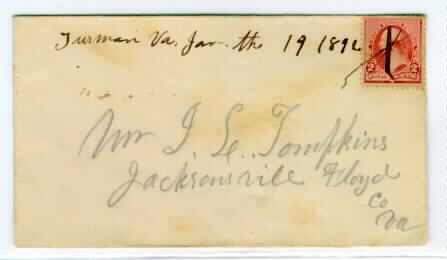 Turman Va. Jan. the 19 1892
Mr J. L. Tompkins
Jacksonsville Floyd
Co
Va